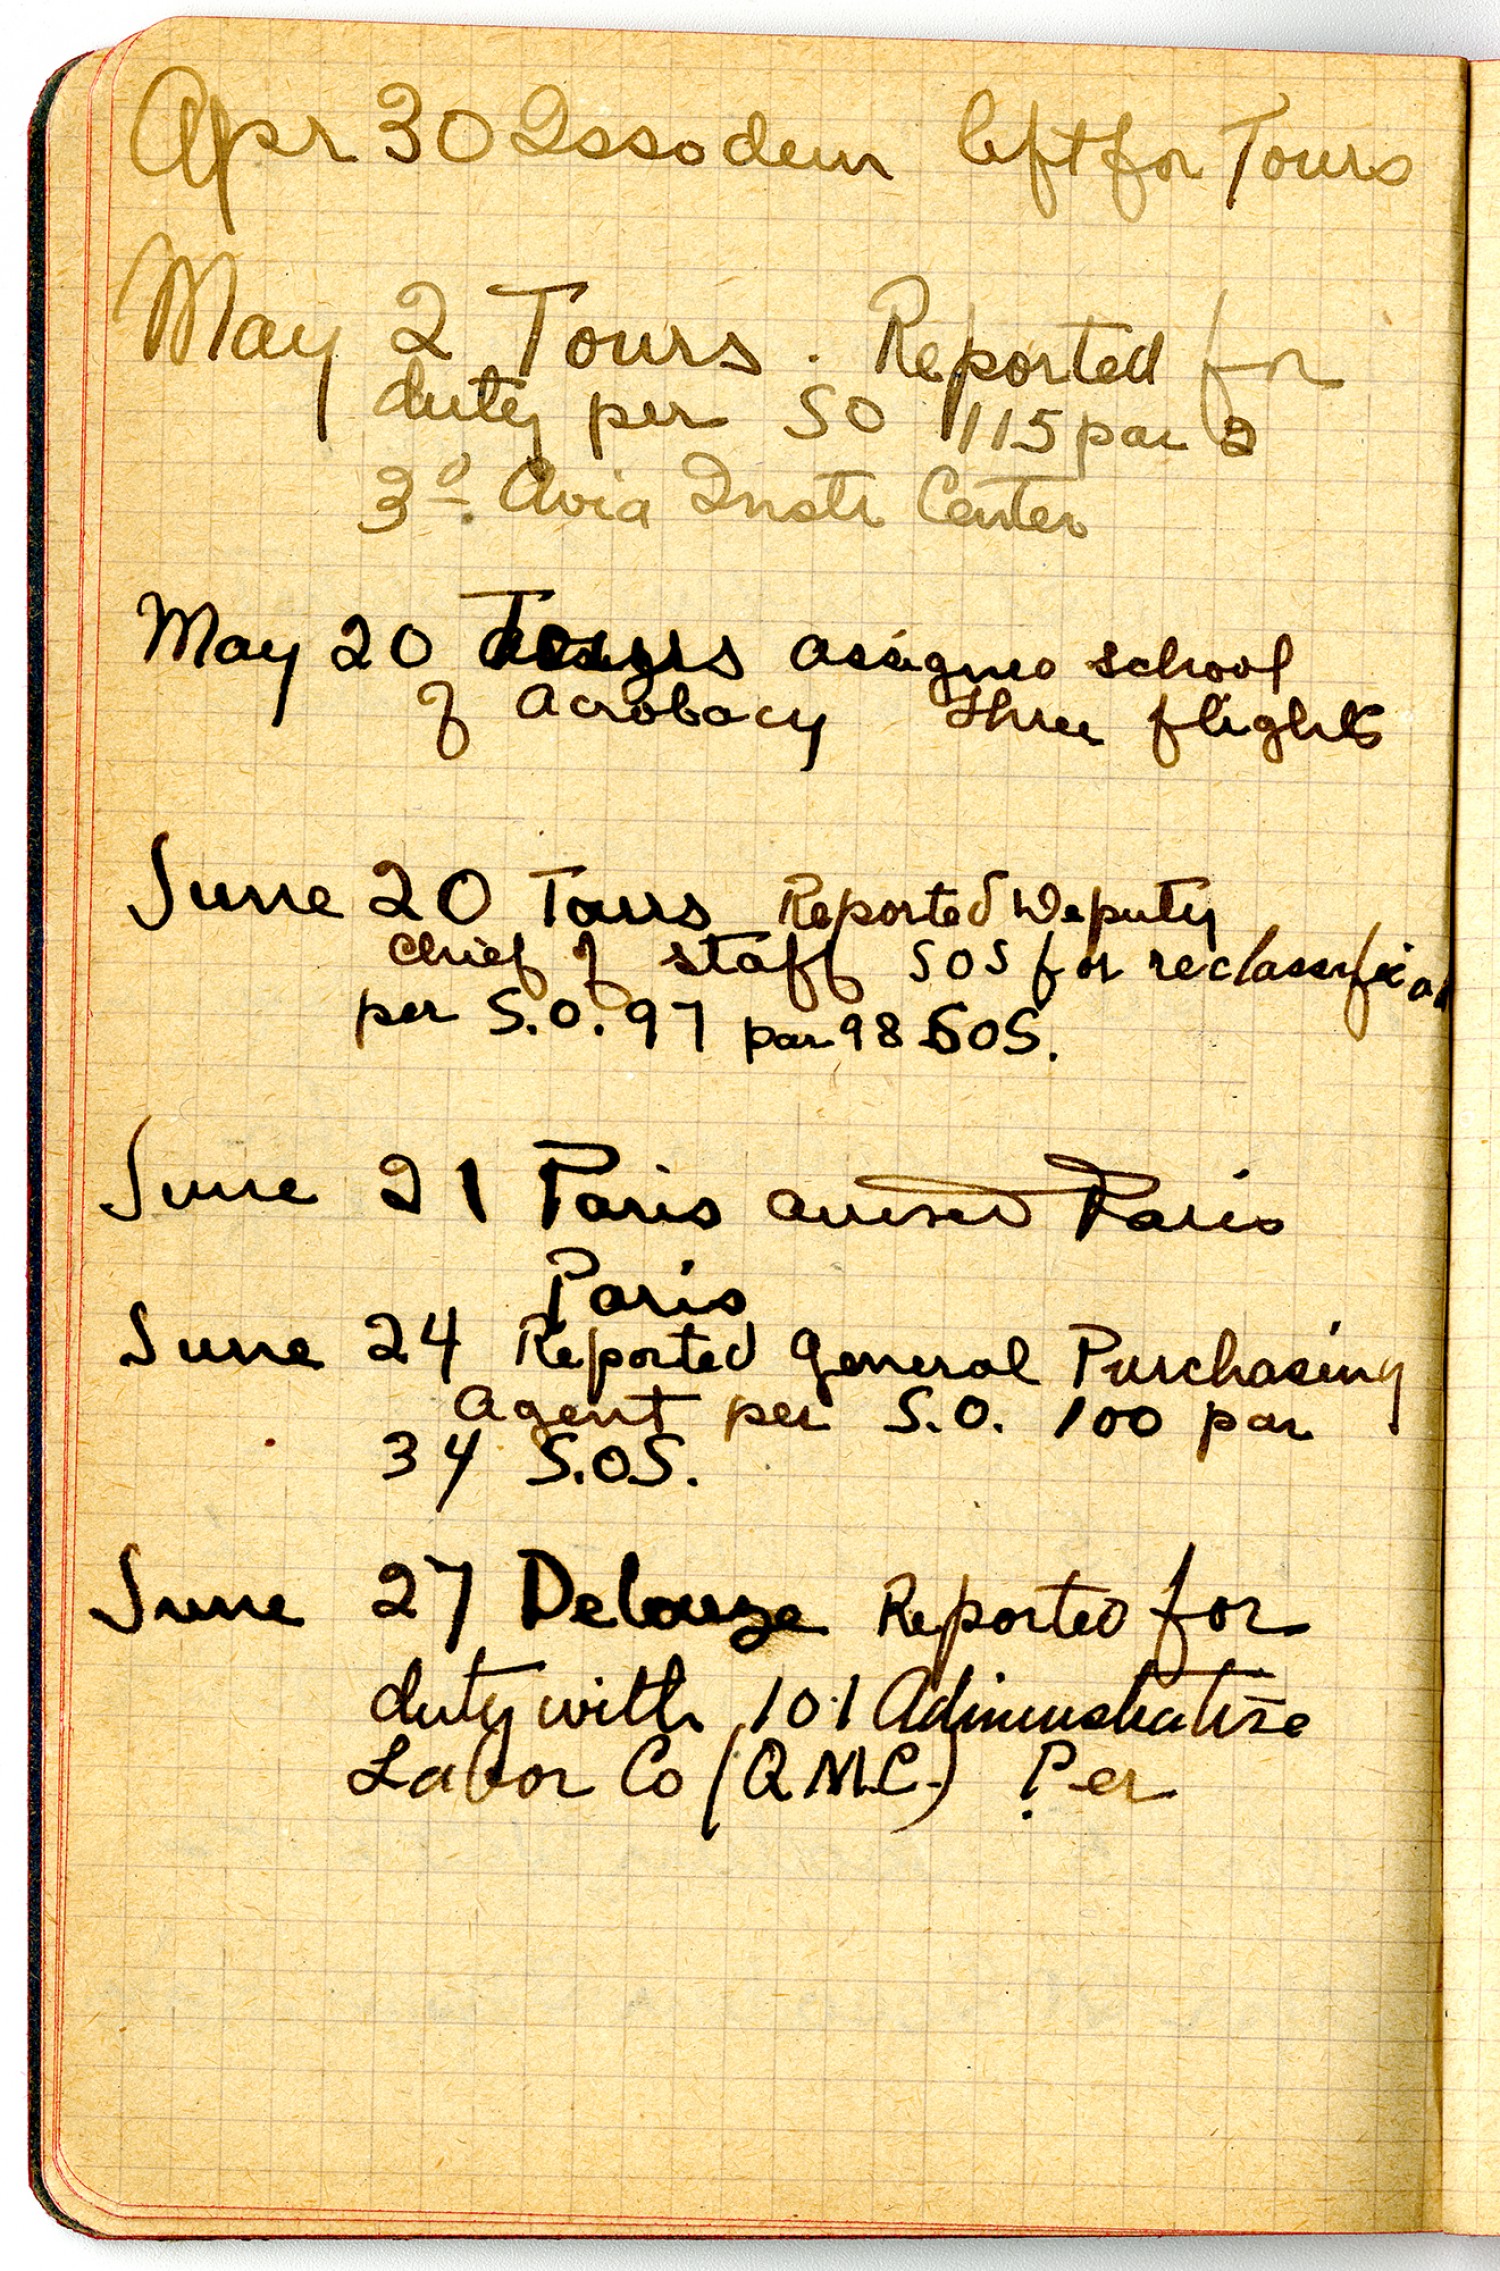 Apr 30 Issodem left for Tours
May 2 Tours. Reported for
duty per SO 115 par 2
3d. Avia Instr Center
May 20 Tours assigned school
of acrobacy three flights
June 20 Tours Reported Deputy
chief of staff SOS for reclassification
per S.O. 97 par 98 SOS.
June 21 Paris arrived Paris
Paris
June 24 Reported General Purchasing
agent per S.O. 100 par
34 S.O.S.
June 27 Delouze Reported for
duty with 101 Administrative
Labor Co (Q.M.C.) Per